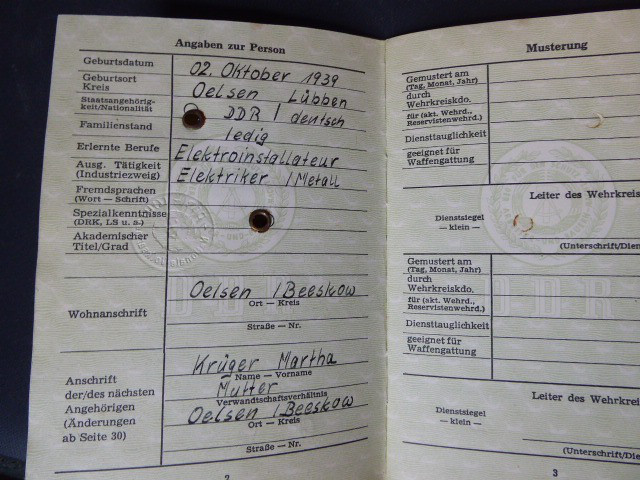 Angaben zur Person
Geburtsdatum 02. Oktober 1939
Geburtsort Oelsen Lübben
Kreis
Staatsangehörig-
keit/Nationalität DDR / deutsch
Familienstand ledig
Erlernte Berufe Elektroinstallateur
Ausg. Tätigkeit Elektriker / Metall
(Industriezweig)
Fremdsprachen
(Wort — Schrift)
Spezialkenntnisse
(DRK, LS u. a.)
Akademischer
Titel/Grad
Oelsen / Beeskow
Wohnanschrift Ort — Kreis
Straße — Nr.
Krüger Martha
Name — Vorname
Anschrift Mutter
der/des nächsten Verwandtschaftsverhältnis
Angehörigen Oelsen / Beeskow
(Änderungen Ort — Kreis
ab Seite 30)
Straße — Nr.
2
Musterung
Gemustert am
(Tag, Monat, Jahr)
durch
Wehrkreiskdo.
für (akt. Wehrd.,
Reservistenwehrd.)
Diensttauglichkeit
geeignet für
Waffengattung
Leiter des Wehrkreis
Dienstsiegel
— klein —
(Unterschrift/Dien
Gemustert am
(Tag, Monat, Jahr)
durch
Wehrkreiskdo.
für (akt. Wehrd.,
Reservistenwehrd.)
Diensttauglichkeit
geeignet für
Waffengattung
Leiter des Wehrkreis
Dienstsiegel
— klein —
(Unterschrift/Dien
3